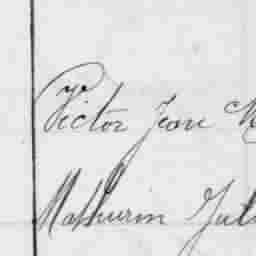 Victor Jean
Mathurin